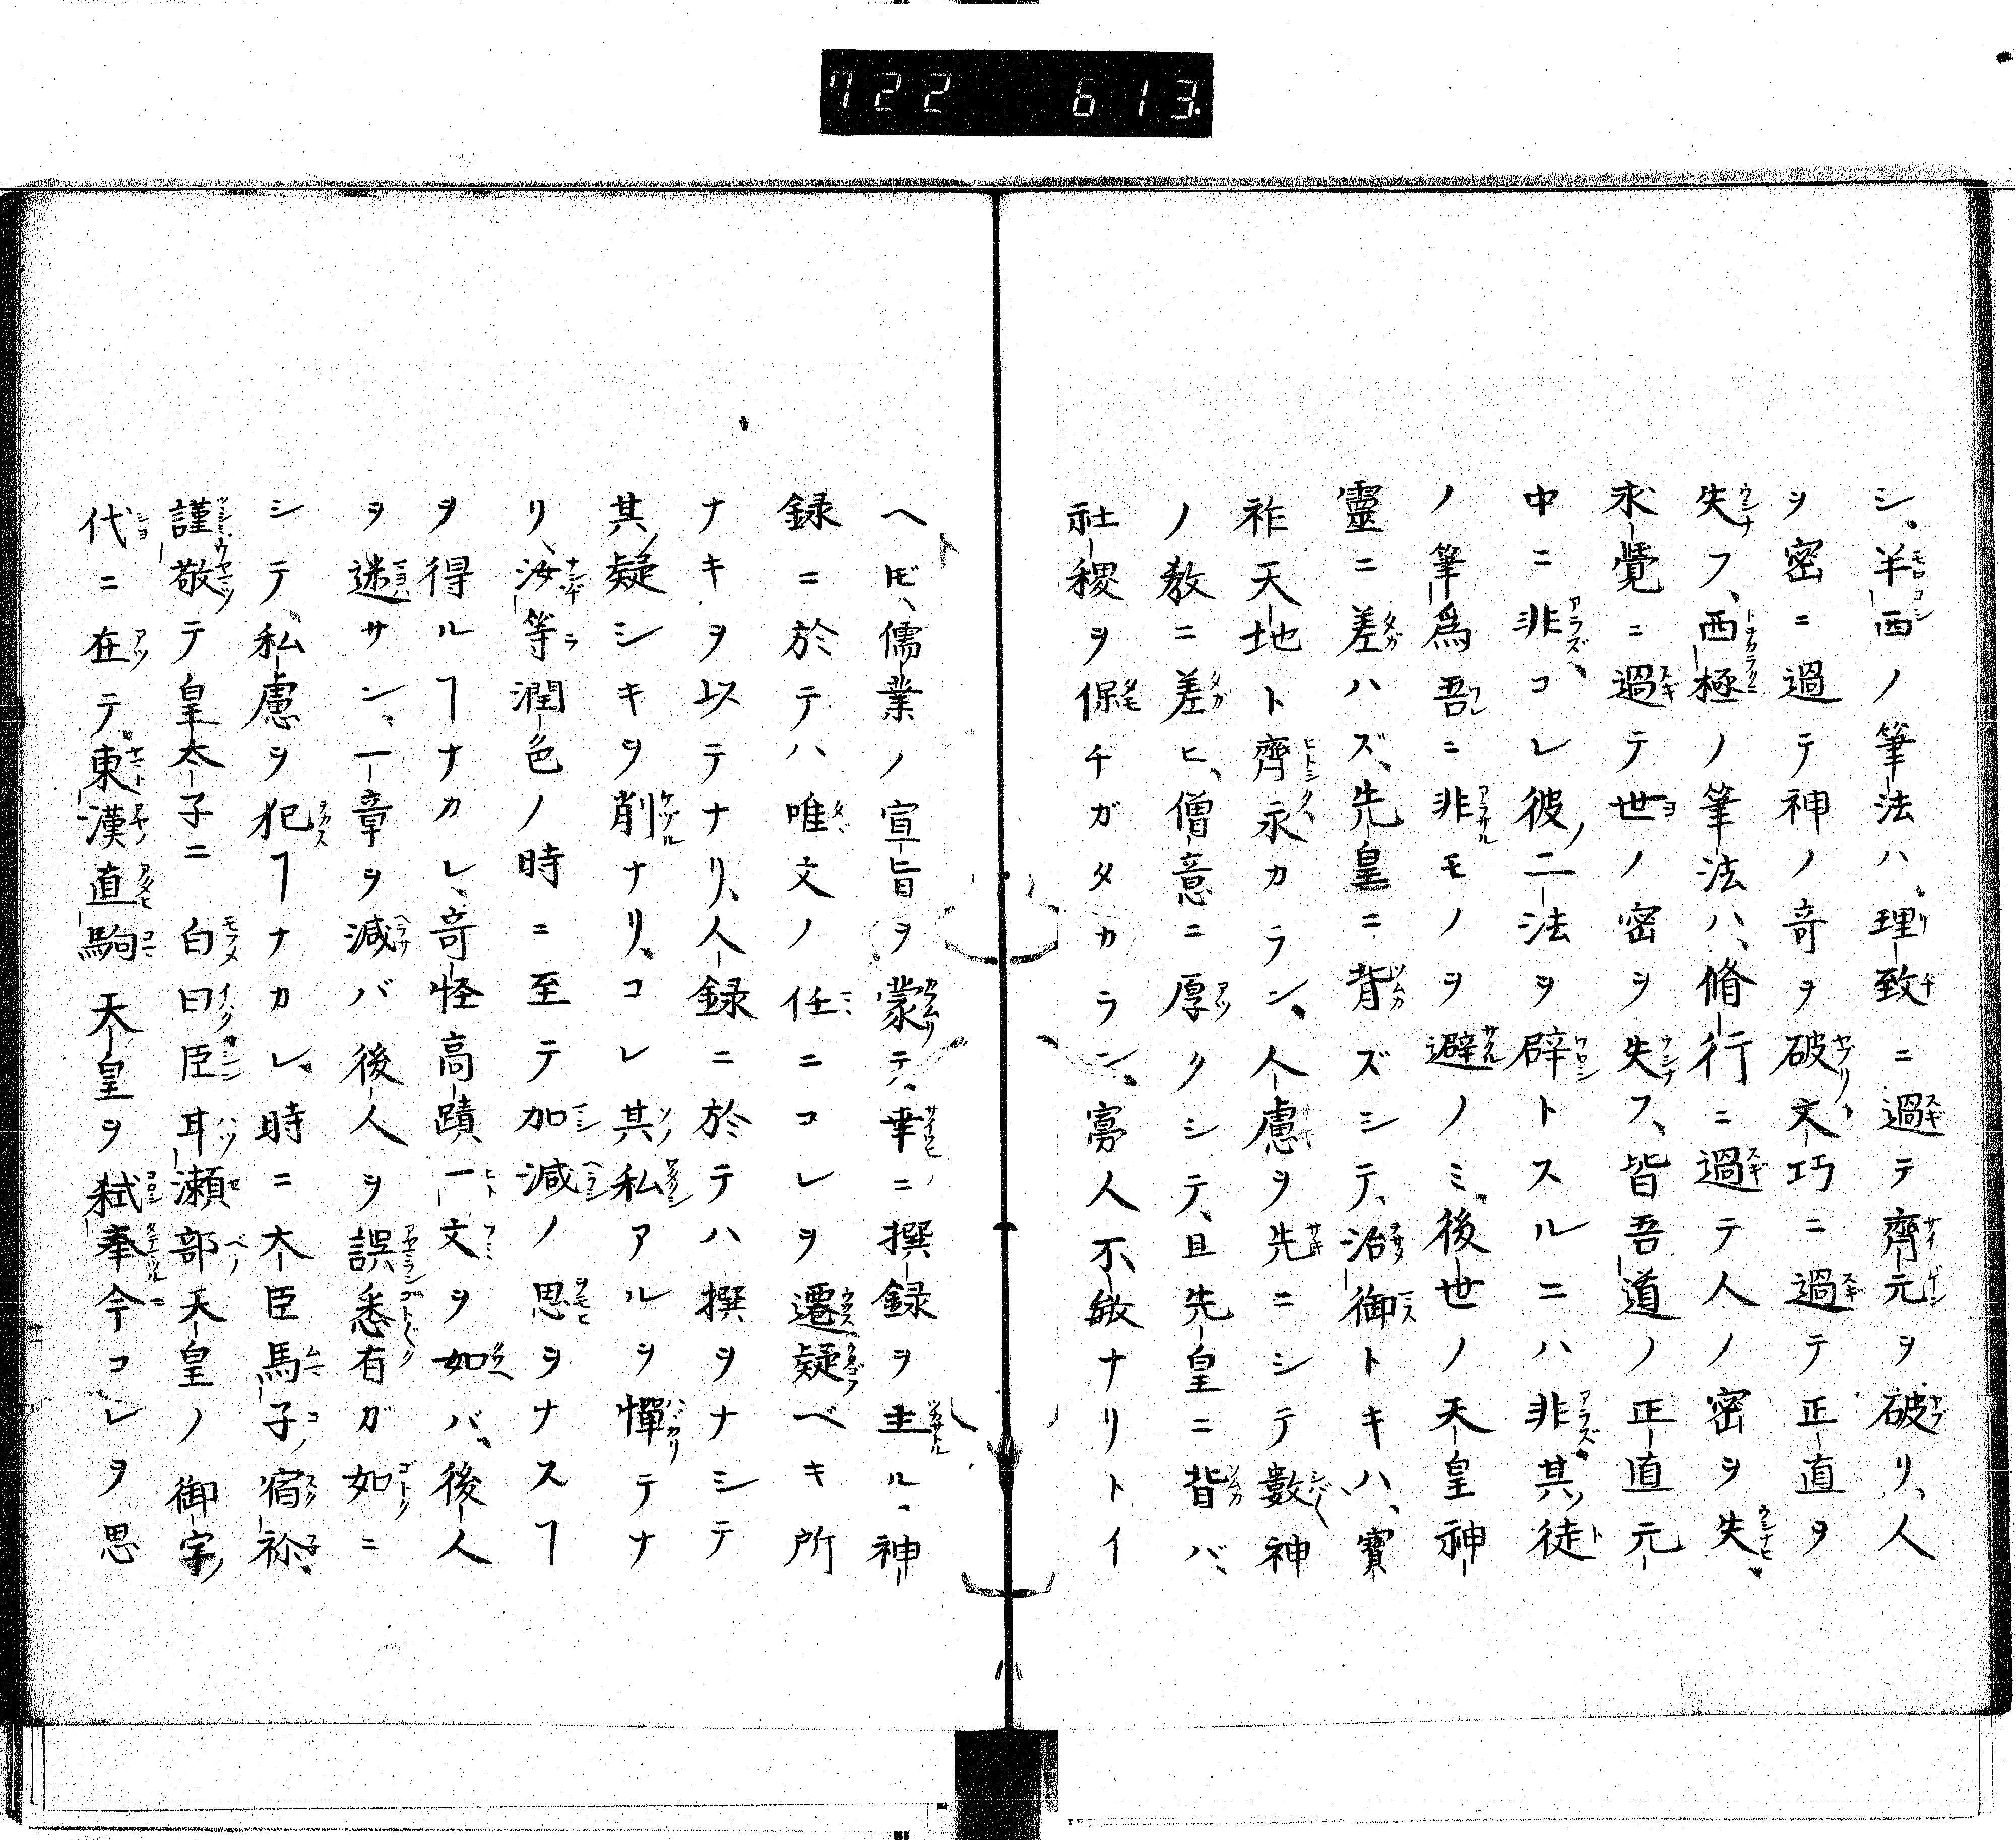 722 613
シ、羊西ノ筆法ハ、理致ニ過テ齊元ヲ破リ、人
ヲ密ニ過テ神ノ奇ヲ破リ、文巧ニ過テ正直ヲ
失フ、西極ノ筆法ハ、脩行ニ過テ人ノ密ヲ失、
求覺ニ過テ世ノ密ヲ失フ、皆吾道ノ正直元
中ニ非、コレ彼ノ二法ヲ辟トスルニハ非、其ノ徒
ノ筆爲吾ニ非モノヲ避ノミ、後世ノ天皇神
靈ニ差ハズ、先皇ニ背ズシテ、治御トキハ、寶
祚天地ト齊永カラン、人慮ヲ先ニシテ數神
ノ教ニ差ヒ、僧意ニ厚クシテ、且先皇ニ背バ、
社稷ヲ保チガタカラン、寡人不敏ナリトイ
ヘドモ、儒業ノ宣旨ヲ蒙テ、幸ニ撰録ヲ主ル、神
録ニ於テハ唯文ノ任ニコレヲ遷疑ベキ所
ナキヲ以テナリ、人録ニ於テハ撰ヲナシテ
其ノ疑シキヲ削ナリ、コレ其私アルヲ憚テナ
リ、汝等潤色ノ時ニ至テ加減ノ思ヲナスヿ
ヲ得ルヿナカレ、奇怪高蹟、一文ヲ如バ、後人
ヲ迷サン、一章ヲ減バ後人ヲ誤悉有ガ如ニ
シテ、私慮ヲ犯ヿナカレ、時ニ大臣馬子ノ宿祢、
謹敬テ皇太子ニ白曰臣耳瀬部天皇ノ御宇ノ
代ニ在テ、東漢直駒天皇ヲ弑奉今コレヲ思